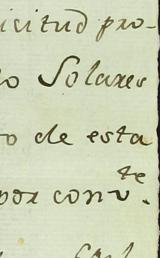 icitud pro-
o Solares
o de esta
por conv.te